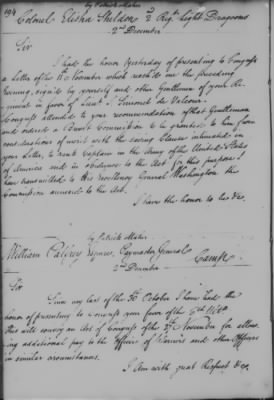 194
by Patrick Maher
Colonel Elisha Sheldon 2d Regt. Light Dragoons
2nd December
Sir
I had the honor Yesterday of presenting to Congress
a Letter of the November which reached me the preceding
Evening, signed by yourself and other Gentlemen of your Re-
giment in favor of Lieut. de Valcour.
Congress attended to your recommendation of that Gentleman
and ordered a Brevet Commission to be granted to him from
considerations of merit with the saving Clause intimated in
your Letter, to rank Captain in the Army of the United States
of America and in obedience to the Act for this purpose I
have transmitted to his Excellency General Washington the
Commission annexed to the Act.
I have the honor to be &c.
by Patrick Maher
William Palfrey Esquire, Paymaster General Camp
2nd December
Sir
Since my last of the 30 October I have had the
honor of presenting to Congress your favor of the Ulto.
This will convey an Act of Congress of the 27 November for allow-
ing additional pay to the Officers of and other Officers
in similar circumstances.
I am with great Respect &c.